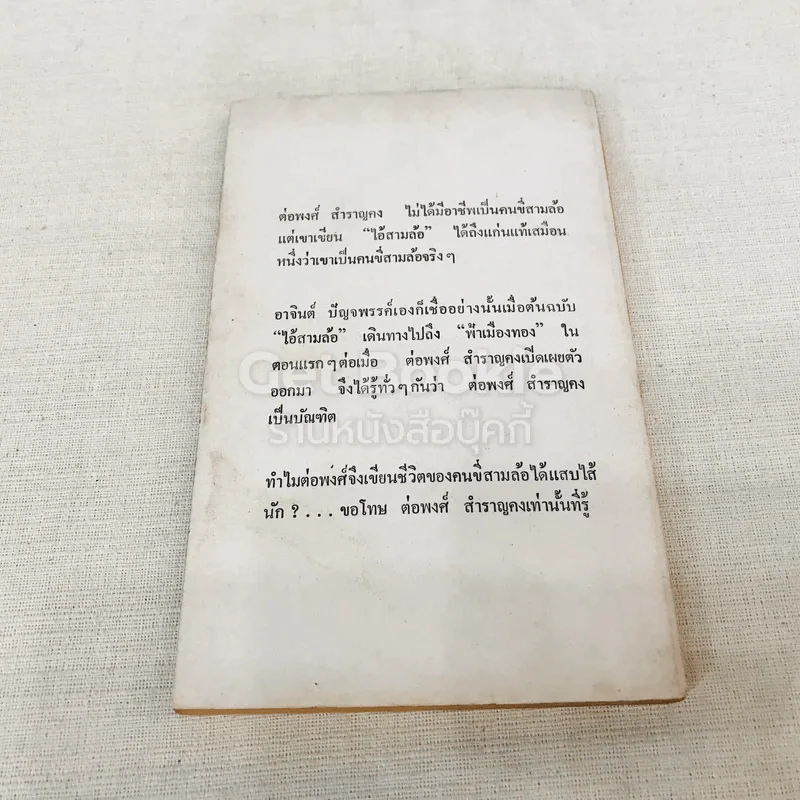 ต่อพงศ์ สำราญคง ไม่ได้มีอาชีพเป็นคนขี่สามล้อ
แต่เขาเขียน “ไอ้สามล้อ” ได้ถึงแก่นแท้เสมือน
หนึ่งว่าเขาเป็นคนขี่สามล้อจริง ๆ
อาจินต์ ปัญจพรรค์เองก็เชื่ออย่างนั้นเมื่อต้นฉบับ
“ไอ้สามล้อ” เดินทางไปถึง “ฟ้าเมืองทอง” ใน
ตอนแรก ๆ ต่อเมื่อ ต่อพงศ์ สำราญคงเปิดเผยตัว
ออกมา จึงได้รู้ทั่ว ๆ กันว่า ต่อพงศ์ สำราญคง
เป็นบัณฑิต
Get Bookie
ร้านหนังสือบุ๊คกี้
ทำไมต่อพงศ์จึงเขียนชีวิตของคนขี่สามล้อได้แสบไส้
นัก ? . . . ขอโทษ ต่อพงศ์ สำราญคงเท่านั้นที่รู้